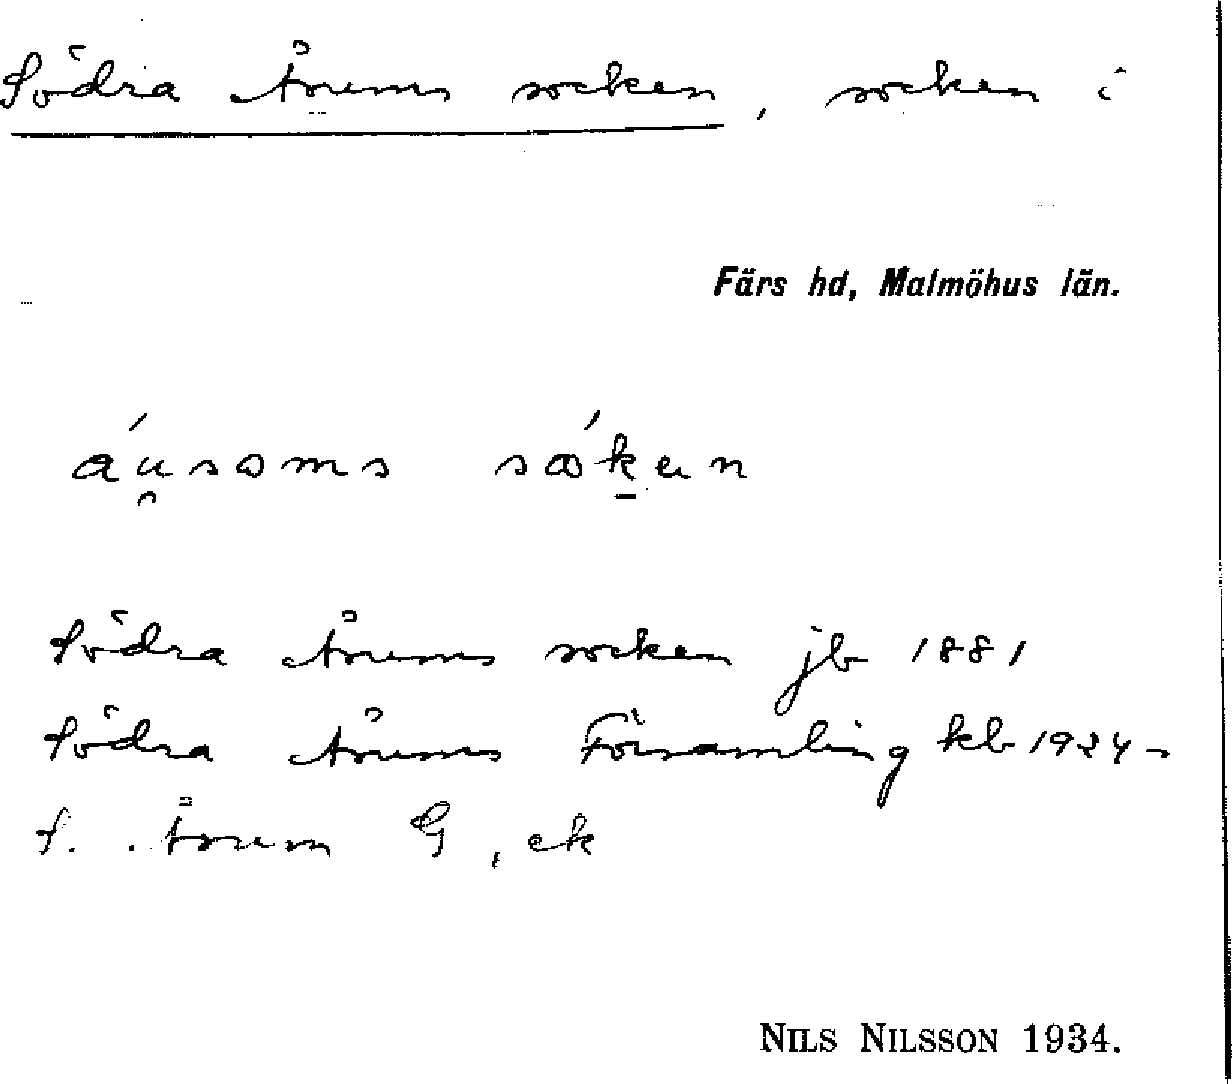 Södra Åsums socken, socken i
Färs hd, Malmöhus län.
áu̯soms sǻken
Södra Åsums socken jb 1881
Södra Åsums Församling kb 1924-
S. Åsum G, ek
NILS NILSSON 1934.